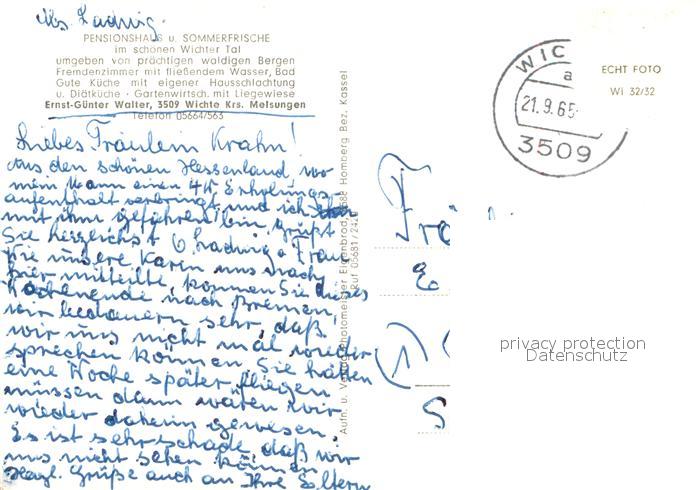 Abs. Ludwig.
PENSIONSHAUS u. SOMMERFRISCHE
im schönen Wichter Tal
umgeben von prächtigen waldigen Bergen
Fremdenzimmer mit fließendem Wasser, Bad
Gute Küche mit eigener Hausschlachtung
u. Diätküche · Gartenwirtsch. mit Liegewiese
Ernst-Günter Walter, 3509 Wichte Krs. Melsungen
Telefon 05664/563
Liebes Fräulein Krahn!
Aus den schönen Hessenland, wo
mein Mann einen 4W. Erholungs
aufenthalt verbringt und ich
mit ihm gefahren bin, grüßt
Sie herzlichst Ludwig u. Frau
Wie unsere Karin uns nach
hier mitteilte, kommen Sie dieses
Wochenende nach Bremen,
wir bedauern sehr, daß
wir uns nicht mal wieder
sprechen können. Sie hätten
eine Woche später fliegen
müssen dann wären wir
wieder daheim gewesen.
Es ist sehr schade, daß wir
uns nicht sehen können
Herzl. Grüße auch an Ihre Eltern
Aufn. u. Verlag Photomeister Eigenbrod, 3588 Homberg Bez. Kassel
Ruf 05681/2420
WIC
a
21.9.65
3509
ECHT FOTO
Wi 32/32
Frä
privacy protection
Datenschutz